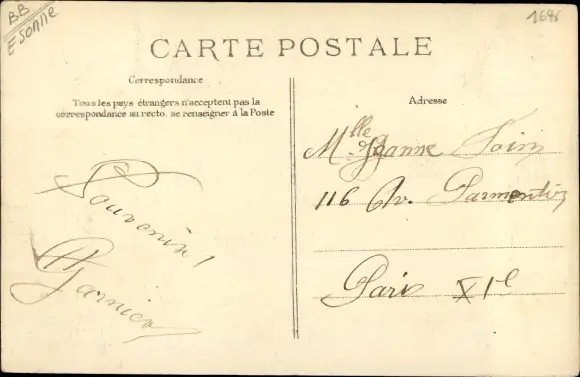 BB
Esonne
1645
CARTE POSTALE
Correspondance
Tous les pays étrangers n'acceptent pas la
correspondance au recto, se renseigner à la Poste
Souvenir!
Garnier
Adresse
Mlle Jeanne Soin
116 Av. Parmentier
Paris XIe